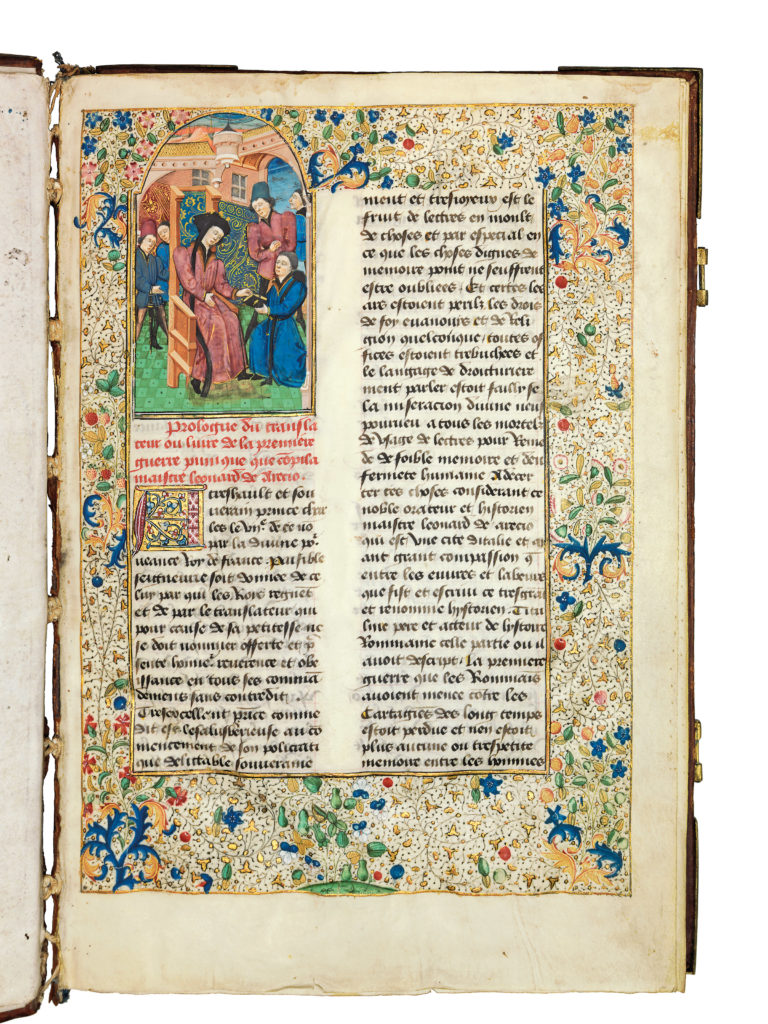 Prologue du transla
teur ou livre de la premiere
guerre punique que compila
maistre leonard de Arecio
A treshault et sou
uerain prince char
les le vije de ce no
par la diuine por
ueance Roy de france. Paisible
seigneurie soit donnee de ce
luy par qui les Roys regnet
et de par le translateur qui
pour cause de sa petitesse ne
se doit nommer offerte et pre
sente honneur reuerence et obe
issance en tout ses comma
demens sans contredit
Tresexcellent prince comme
dit est lesalusberieuse au co
mencement de son policrati
que delittable souuerainne
ment et tresioyeux est le
fruit de lectres en moult
de choses et par especial en
ce que les choses dignes de
memoire point ne seuffrent
estre oubliees. Et certes les
ars estoient peris les drois
de foy euanouis et de Reli
gion quelconque toutes of
fices estoient trebuchees et
le langage de droicturiere
ment parler estoit failly se
la miseracion diuine neust
pourueu a tous les mortelz
de usage de lectres pour Reme
de de foible memoire et den
fermete humaine Adecer
tes ces choses considerant ce
noble orateur et hystorien
maistre leonard de arecio
qui est vne cite ditalie et ay
ant grant compassion q
entre les euures et labeurs
que fist et escriui ce tresgrat
et renomme hystorien. Titu
line pere et acteur de lystoire
Rommaine celle partie ou il
auoit descript. La premiere
guerre que les Rommais
auoient menee cotre les
Cartagies des long temps
estoit perdue et nen estoit
plus aucune ou trespetite
memoire entre les hommes